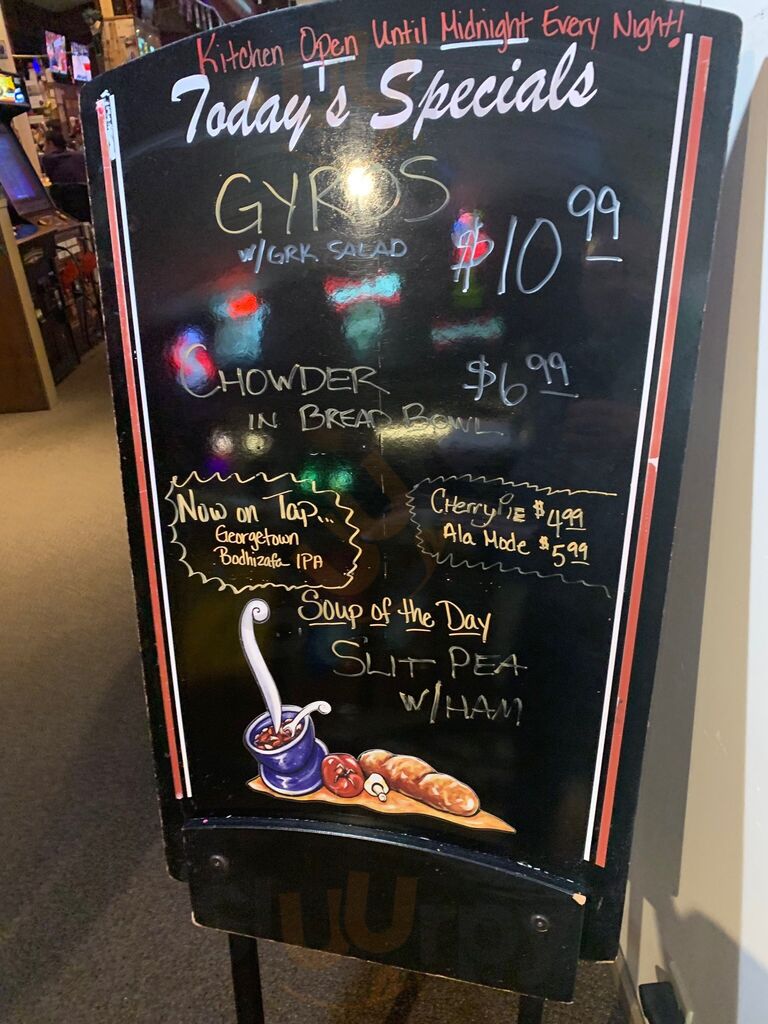 Kitchen Open Until Midnight Every Night!
Today's Specials
GYROS
W/GRK SALAD
$10.99
CHOWDER $6.99
IN BREAD BOWL
Now on Tap...
Georgetown
Bodhizafa IPA
Cherry Pie $4.99
Ala Mode $5.99
Soup of the Day
SLIT PEA
W/HAM